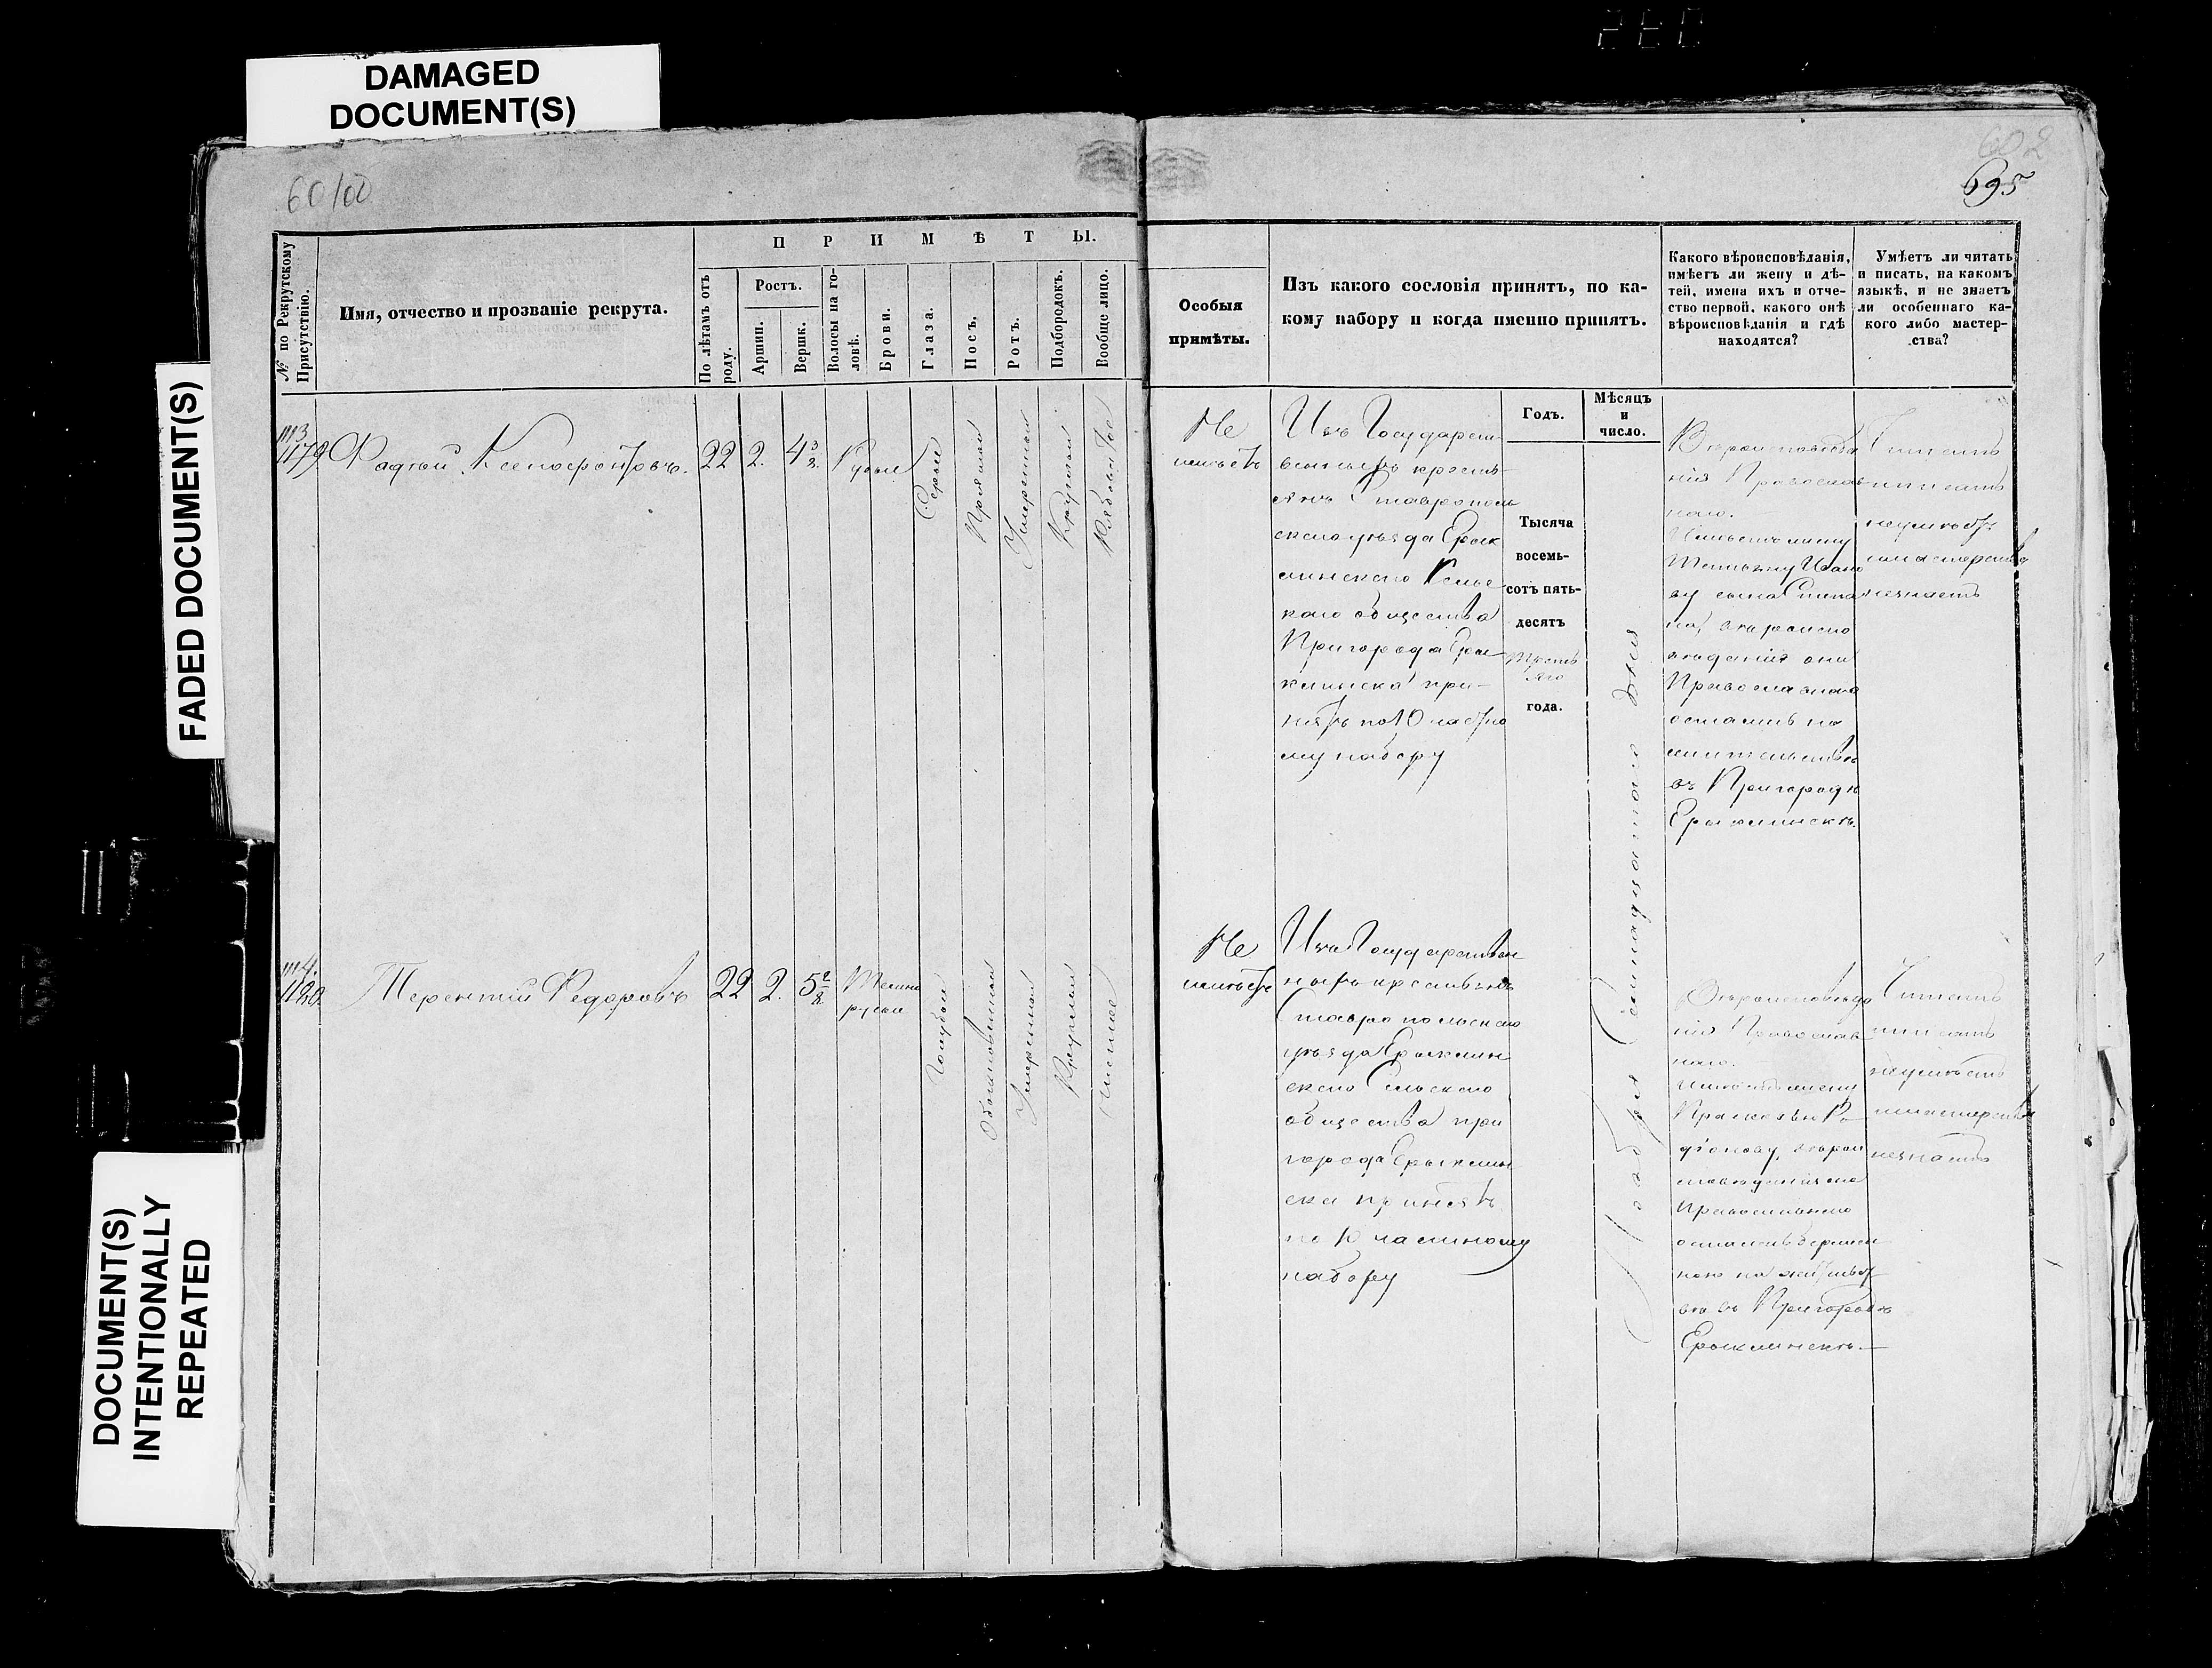 DAMAGED
DOCUMENT(S)
FADED DOCUMENT(S)
DOCUMENT(S)
INTENTIONALLY
REPEATED
602
695
№ по Рекрутскому
Присутствію.
Имя, отчество и прозваніе рекрута.
ПРИМѢТЫ.
По лѣтамъ отъ
роду.
Ростъ.
Аршин.
Вершк.
Волосы на го-
ловѣ.
Брови.
Глаза.
Носъ.
Ротъ.
Подбородокъ.
Вообще лицо.
Особыя
примѣты.
Изъ какого сословія принятъ, по ка-
кому набору и когда именно принятъ.
Какого вѣроисповѣданія,
имѣетъ ли жену и дѣ-
тей, имена ихъ и отче-
ство первой, какого онѣ
вѣроисповѣданія и гдѣ
находятся?
Умѣетъ ли читать
и писать, на какомъ
языкѣ, и не знаетъ
ли особеннаго ка-
кого либо мастер-
ства?
Годъ.
Мѣсяцъ
и
число.
1113
1179
Фадѣй Ксенофонтовъ.
22
2.
4 3/8
Русые
Сѣрые
Прямой
Умеренный
Круглой
Рябоватое
Не
имѣетъ
Изъ Государст
венныхъ кресть-
янъ Ставрополь
скаго уѣзда Ерык
линскаго Сельс
каго общества
Пригорода Еры
клинска при-
нятъ по 10 частно
му набору
Тысяча
восемь-
сотъ пять-
десятъ
третья
яго
года.
Ноября Семнадцатаго дня
Вѣроисповѣда
нія Православ
наго.
Имѣетъ жену
Татьяну Ивано
ву сына Степа
на, вѣроиспо
вѣданія они
Православнаго
остались на
жительствѣ
въ Пригородѣ
Ерыклинскѣ.
Читать
писать
неумѣетъ
имастерства
незнаетъ
1114.
1180.
Терентій Федоровъ
22
2.
5 2/8
Темно
русые
Голубые
Обыкновенный
Умеренный
Круглый
Чистое
Не
имѣетъ
Изъ Государствен
ныхъ крестьянъ
Ставропольскаго
уѣзда Ерыклин
скаго Сельскаго
общества при
города Ерыклин
ска принятъ
по 10 частному
набору
Вѣроисповѣда
нія Православ
наго.
Имѣетъ жену
Прасковью Ро
діонову, вѣрои
сповѣданія она
Православнаго
осталась беремен
ною на жительст
вѣ въ Пригородѣ
Ерыклинскѣ.
Читать
писать
неумѣетъ
имастерства
незнаетъ